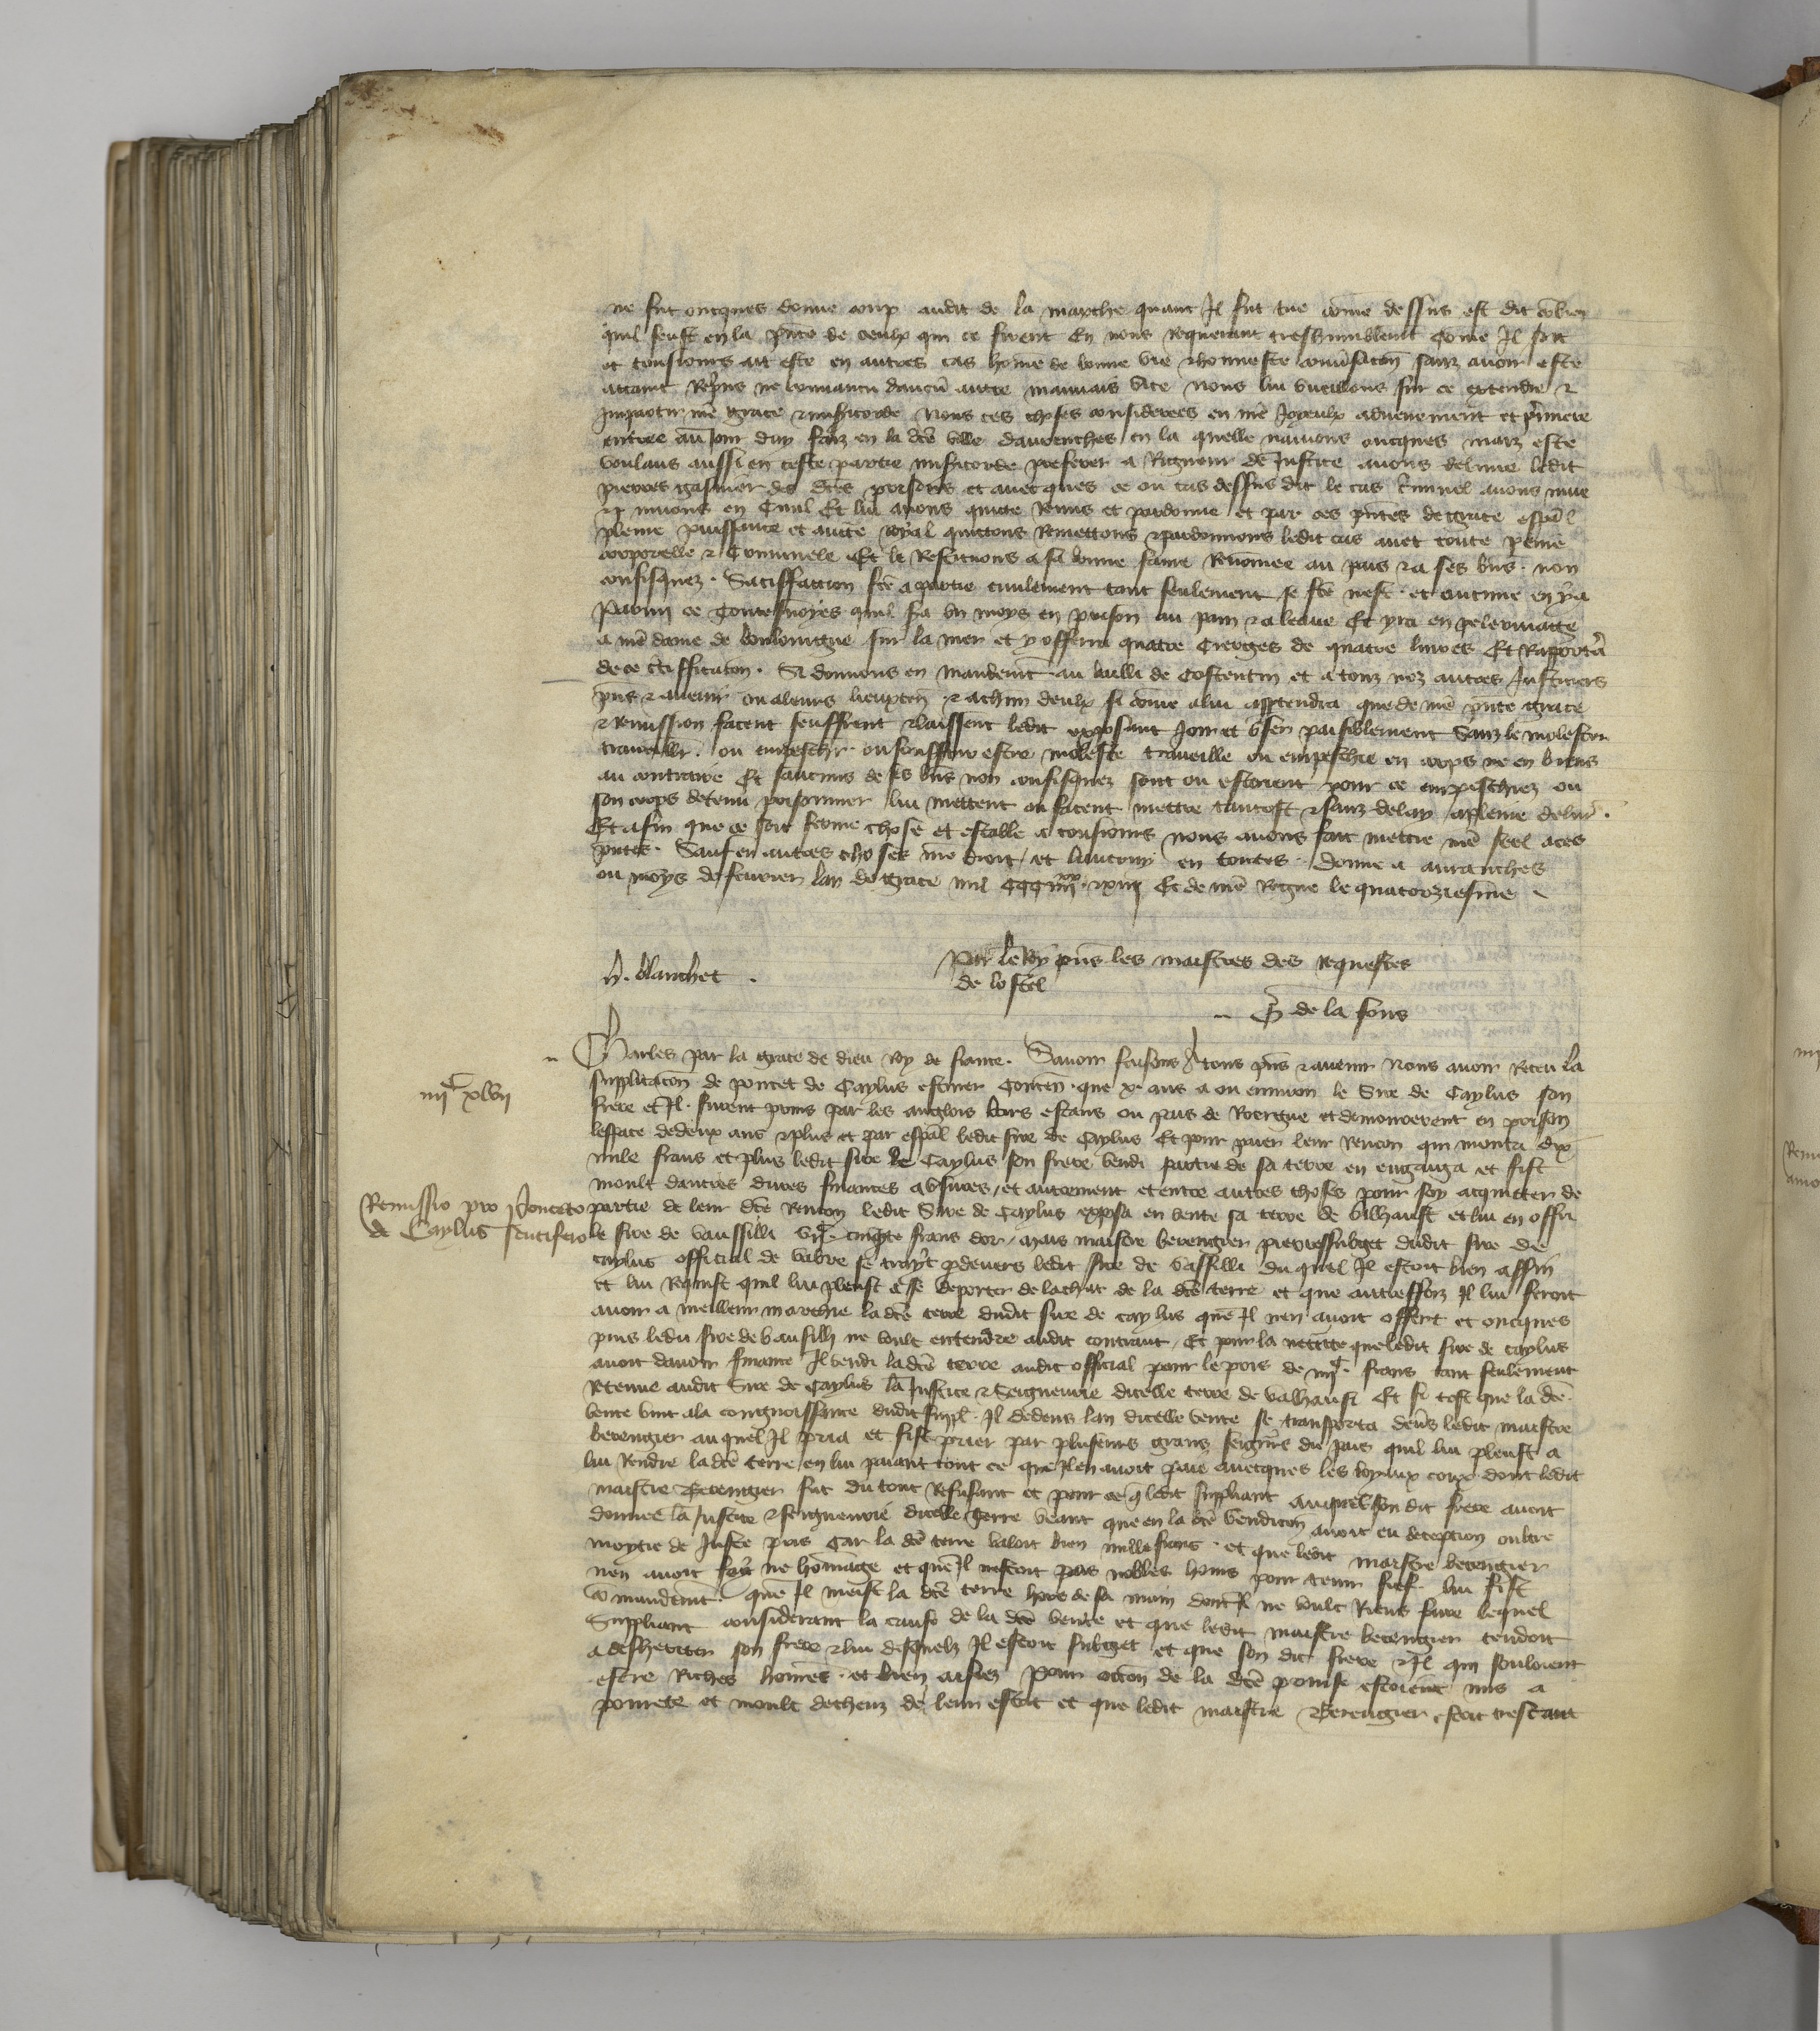 ne fut oncques donne coup audit de la marche quant Il fut tue come dessus est dit cobien
quil feust en la pnce de ceulx qui ce firent En nous requerant treshumblemt Come Il soit
et tousiours ait este en autres cas home de bonne vie & honneste conusacon sanz auoir este
attaint Repris ne conuaincu daucun autre mauuais vice nous lui vueillons sur ce extendre &
Impartir nre grace & misicorde Nous ces choses considerees en nre Joyeulx aduenement et pmiere
entree au Jour duy faiz en la dce ville dauranches en la quelle nauions oncques maiz este
voulans aussi en ceste partie misicorde preferer a Rigueur de Justice auons deliure ledit
pierres des dces prisons et auecques ce ou cas dessus dit le cas Criminel auons mue
et muons en Ciuil Et lui auons quicte Remis et pardonne et par ces pntes de grace espal
pleine puissance et aucte Royal quictons Remettons & pardonnons ledit cas auec toute peine
corporelle & Criminele Et le Restituons a sa bonne fame Renomee au pais & a ses bns non
confisquez. Satisffaccion fce a partie ciuilement tant seulement se fce nest et aucune en y a
Parmi ce quil sa vn moys en prison au pain & a leaue Et yra en pelerinaige
a nre dame de bouloungne sur la mer et y offerra quatre Cierges de quatre liures Et Rapportera
de ce ctifficacon. Si donnons en mandemt au bailli de Costentin et a touz noz autres Justiciers
pns & auenir ou a leurs lieuxten & a chun deulx si come a lui apptendra que de nre pnte grace
& Remission facent seuffrent & laissent ledit exposant Joir et vser paisiblement Sanz le molester
trauaillr. ou empeschr ou souffrir estre moleste trauaillie ou empeschie en corps ne en biens
au contraire Et saucuns de ses bns non confisquez sont ou estoient pour ce empeschiez ou
son corps detenu prisonnier lui mettent ou facent mettre tantost & sanz delay a pleine deliur.
Et afin que ce soit ferme chose et estable a tousiours nous auons fait mettre nre seel a ces
pntes. Sauf en autres choses nre droit et lautruy en toutes. Donne a auranches
ou moys de feurier lan de grace mil CCC iiijxx. xiij Et de nre Regne le quatorziesme
h. blanchet.
Par le Roy pns les maistres des requestes
de lostel
G de la fons
iiijc xlvij
Charles par la grace de dieu Roy de france. Sauoir faisons A tous pns & auenir Nous auoir Receu la
supplicacon de poncet de Caylus escuier Conten. que x ans a ou enuiron le Sire de Caylus son
frere et Il furent prins par les anglois lors estans ou pais de Roergue et demourerent en prison
lespace de deux ans & plus et par espal ledit sire de Caylus Et pour paier leur Rencon qui monta dix
mile frans et plus ledit sire de Caylus son frere vendi partie de sa terre en engaiga et fist
moult dautres dures finances a vsures et autrement et entre autres choses pour soy acquicter de
Remissio pro Ponceto
de Caylus scutifero
partie de leur dce Rencon ledit Sire de Caylus exposa en vente sa terre de vilhaust et lui en offri
le sire de vaussilli vijc cinqte frans dor mais maistre berengier pierressubget dudit sire de
caylus official de vabre se trayt pdeuers ledit sire de vassilli du quel Il estoit bien affin
et lui Requist quil lui pleust a se deporter de lachat de la dce terre et que autreffoiz Il lui feroit
auoir a meilleur marchie la dce terre dudit sire de caylus que Il nen auoit offert et oncques
puis ledit sire de vausilli ne voult entendre audit contraut. Et pour la neccite que ledit sire de caylus
auoit dauoir finance Il vendi la dce terre audit official pour le pris de iiijc. frans tant seulement
Retenue audit Sire de Caylus la Justice & Seigneurie dicelle terre de valhausi Et si tost que la dce
vente vint a la congnoissance dudit suppl. Il dedens lan dicelle vente se transporta deus ledit maistre
berengier au quel Il pria et fist prier par pluseurs grans seigneurs du pais quil lui pleust a
lui Rendre la dce terre en lui paiant tout ce que Il en auoit paie auecques les loyaux coux dont ledit
maistre Berengier fut du tout Refusant et pour ce q ledit suppliant auquel son dit frere auoit
donnee la Justice & seigneurie dicelle terre veant que en la dce vendicon auoit eu decepcion oultre
moytie de Juste pris Car la dce terre valoit bien mille frans et que ledit maistre berengier
nen auoit foy ne hommage et que Il nestoit pas nobles homs pour tenir fief. lui fist
comandemt que Il meist la dce terre hors de sa main dont Il ne voult Riens faire lequel
Suppliant considerant la cause de la dce vente et que ledit maistre berengier tendoit
a desheriter son frere & lui desquelz Il estoit subget et que son dit frere & Il qui souloient
estre Riches homes et bien aisiez Pour occon de la dce prinse estoient mis a
pourete et moult decheuz de leur estat et que ledit maistre Berengier estoit trestant